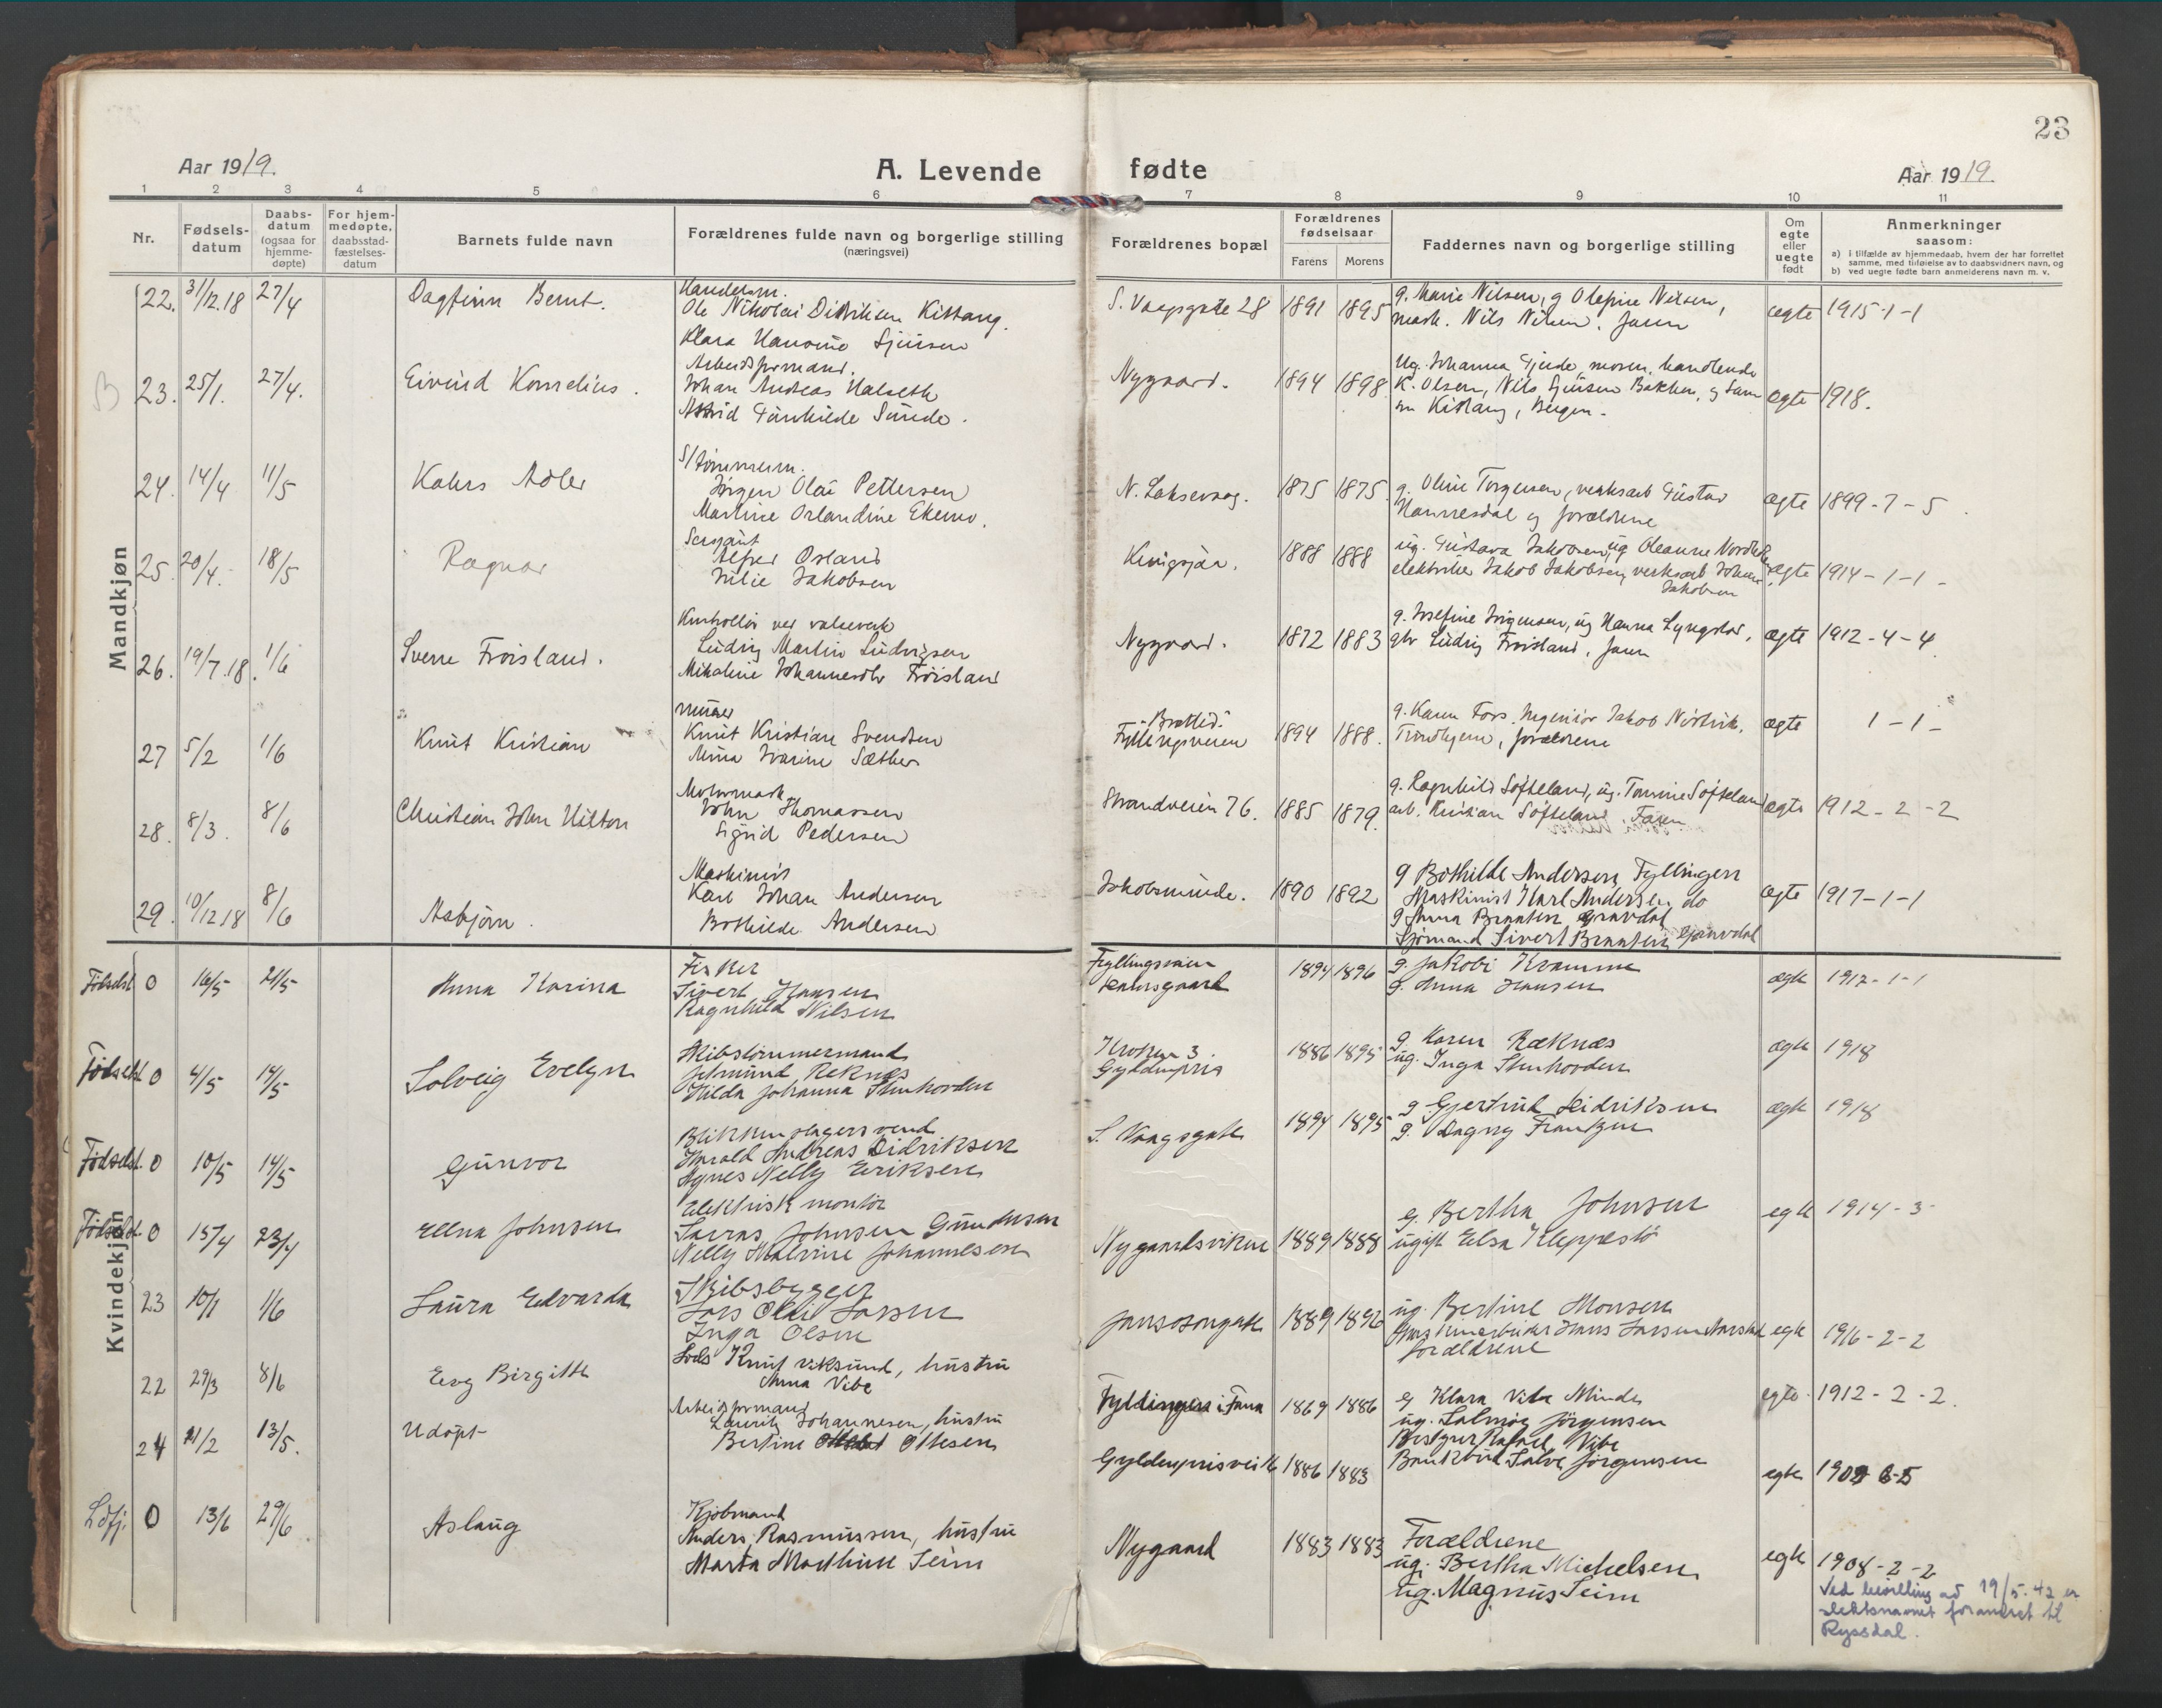 23
Aar 1919.
A. Levende fødte
Aar 1919
1 2 3 4 5 6 7 8 9 10 11
Nr.
Fødsels-
datum
Daabs-
datum
(ogsaa for
hjemme-
døpte)
For hjem-
medøpte,
daabsstad-
fæstelses-
datum
Barnets fulde navn
Forældrenes fulde navn og borgerlige stilling
(næringsvei)
Forældrenes bopæl
Forældrenes
fødselsaar
Farens Morens
Faddernes navn og borgerlige stilling
Om
egte
eller
uegte
født
Anmerkninger
saasom:
a) i tilfælde av hjemmedaab, hvem der har forrettet
samme, med tilføielse av to daabsvidners navn, og
b) ved uegte fødte barn anmelderens navn m. v.
Mandkjøn
22. 31/12.18 27/4 Dagfinn Bernt.
Ole Nikolai Didriksen Kittang.
Klara Sjursen
S. Vaagsgate 28 1891 1895
g. Marie Nilsen, g Olefine Nilsen,
mask. Nils Nilsen. faren
ægte 1915-1-1
B 23. 25/1. 27/4. Eivind Kornelius.
Arbeidsformand.
Johan Andreas Halseth
Astrid Sunde.
Nygaard. 1894 1898.
Ug. Johanna Gjende, moren, handlende
K. Olsen, Nils Sjursen Bakken,
Kittang, Bergen.
ægte 1918.
24. 14/4 11/5 Adler
S/tømmerm.
Jørgen Olai Pettersen
Martine Orlandine Ekemo.
N. Laksevaag. 1875 1875.
g. Oline Torgersen, verksarb Gustav
Hannesdal og forældrene
ægte 1899-7-5
25. 20/4. 18/5 Ragnar
Sergant
Alfred Østand
Julie Jakobsen
1888 1888
ug. Gustava Jakobsen, ug Oleanne
elektriker Jakob Jakobsen, verksarb Johan
Jakobsen
ægte 1914-1-1-
26. 19/7.18. 1/6 Sverre Frøisland.
Kontrollør ved valseverk
Ludvig Martin Ludvigsen
Mikaline Johannesdtr Frøisland
Nygaard. 1872 1883
g. Josefine Jørgensen, ug Hanna Lyngstad,
Ludvig Frøisland, faren
ægte 1912-4-4
27 5/2 1/6 Knut Kristian
murer
Knut Kristian Svendsen
Anna Ivarine Sæther
"Brattlid"
Fyllingsveien 1894 1888.
g. Karen Fors. Ingeniør Jakob
Trondhjem, forældrene
ægte 1-1-
28. 8/3. 8/6 Christian John Hilton
Motormask.
John Thomassen
Sigrid Pedersen
Strandveien 76. 1885 1879.
g. Ragnhild Softeland, ug. Tomine Softeland
arb. Kristian Softeland Faren
ægte 1912-2-2
29. 10/12.18 8/6 Asbjørn.
Maskinist
Karl Johan Andersen
Bothilde Andersen
Jakobsminde. 1890 1892
g Bothilde Andersen, Fyllingen
Maskinist Karl Andersen do
g Anna Braaten Gravdal
Sjømand Sivert Braaten Gravdal
ægte 1917-1-1
Kvindekjøn
Fødselst. 0 16/5 21/5 Anna Karina
Fisker
Sivert Hansen
Ragnhild Nilsen
Fyllingsveien
1894 1896
g. Jakobi Kramme
g. Anna Hansen
ægte 1917-1-1
Fødselst. 0 4/5 14/5 Solveig Evelyn
Skibstømmermand
Johmund Reknes
Hilda Johanna Stenhovden
Kroken 3
Gyldenpris 1886 1895
g. Karen Ræknæs
ug. Inga Stenhovden
ægte 1918
Fødselst. 0 10/5 14/5 Gunvor
Blikkenslagersvend
Harald Andreas Didriksen
Agnes Nelly Eriksen
S. Vaagsgate 1894 1895
g. Gjertrud Didriksen
g. Dagny Frantzen
ægte 1918
Fødselst. 0 15/4 23/4 Ellna Johnsen
Elektrisk montør
Johnsen Gundersen
Nelly Malvine Johannesen
Nygaardsviken 1889 1888
g. Bertha Johnsen
ugift Elsa Kleppestø
egte 1914-3-
23 10/1 1/6 Laura Edvarda
Skibsbygger
Lars Olai Larsen
Inga Olsen
Jansosongate 1889 1896
ug. Bertine Monsen
Hans Larsen
forældrene
egte 1916-2-2
22 29/3 8/6 Evy Birgitte
Lods Knut Viksund, hustru
Anna Vibe
Fyldingen i Fana 1869 1886
g Klara Vibe Minde
ug. Salmøy Jørgensen
Bestyrer Rafael Vibe
Salve Jørgensen
egte. 1912-2-2.
24 21/2 13/5. Udøpt
Arbeidsformand
Lauritz Johannesen, hustru
Bertine Ottesen
Gyldenprisvei 16 1886 1883
egte 1909 6-5
Ldfj. 0 13/6 29/6 Aslaug
Kjøbmand
Anders Rasmussen, hustru
Marta Mathilde Seim
Nygaard 1883 1883
Forældrene
ug. Bertha Michelsen
ug. Magnus Seim
egte 1908-2-2
Ved bevilling av 19/5.42 er
slektsnavnet forandret til
Ryssdal.